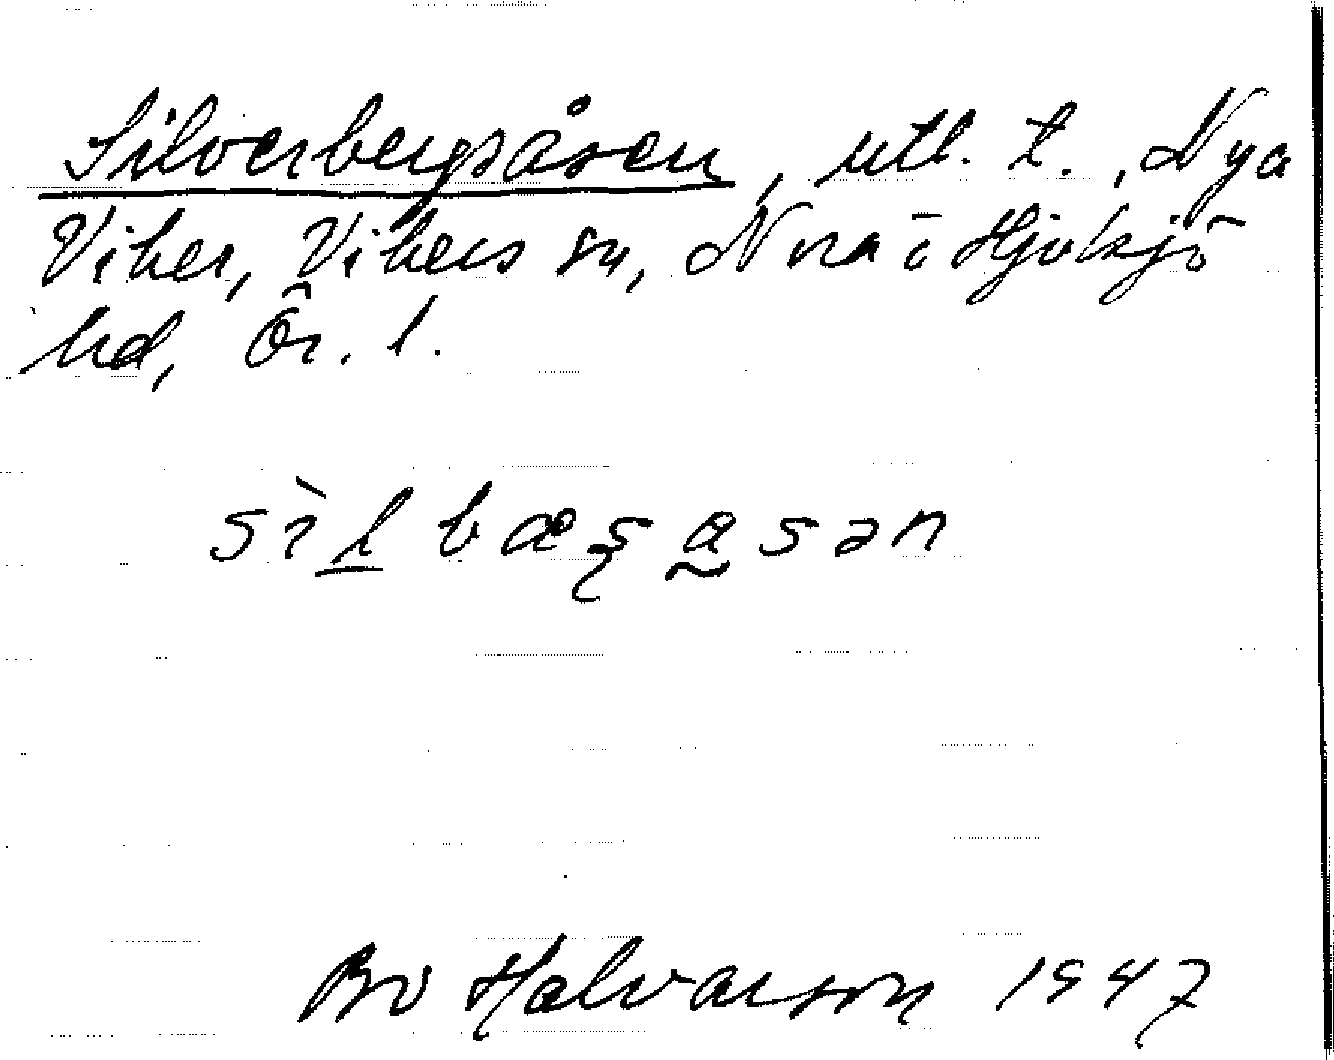 Silverbergsåsen, utl. t., Nya
Viker, Vikers sn, Nora o Hjulsjö
hd, Ör. l.
sìl̲bæʂa̰sən
Bo Halvarson 1947